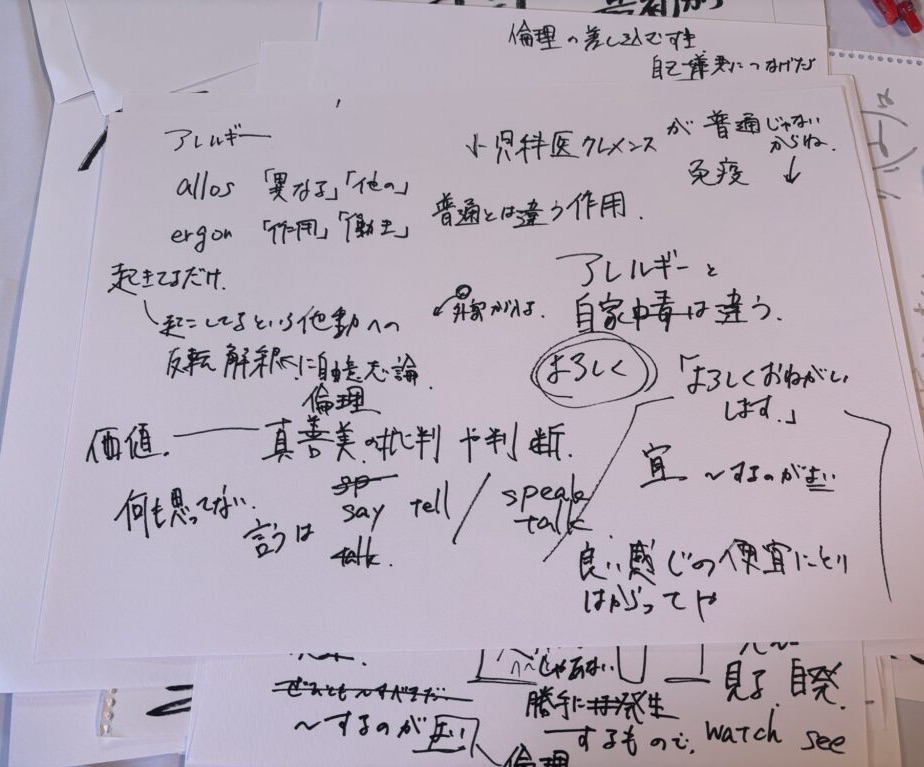 倫理の差し込みです
自己
アレルギー
小児科医クレメンスが普通じゃない
からね
免疫 ↓
allos 「異なる」「他の」
ergon 「作用」「働き」
普通とは違う作用.
起きてるだけ.
起こしてるという他動への
反転解釈に自由意志論.
アレルギーと
自家中毒は違う.
よろしく
「よろしくおねがい
します.」
倫理
価値. 真善美の批判や判断.
宜 〜するのがよい
何も思ってない.
言うは say tell / speak
talk
talk.
良い感じの便宜にとり
はからってや
じゃあない
見る 自発
勝手に発生
するもので, watch see
〜するのが
倫理